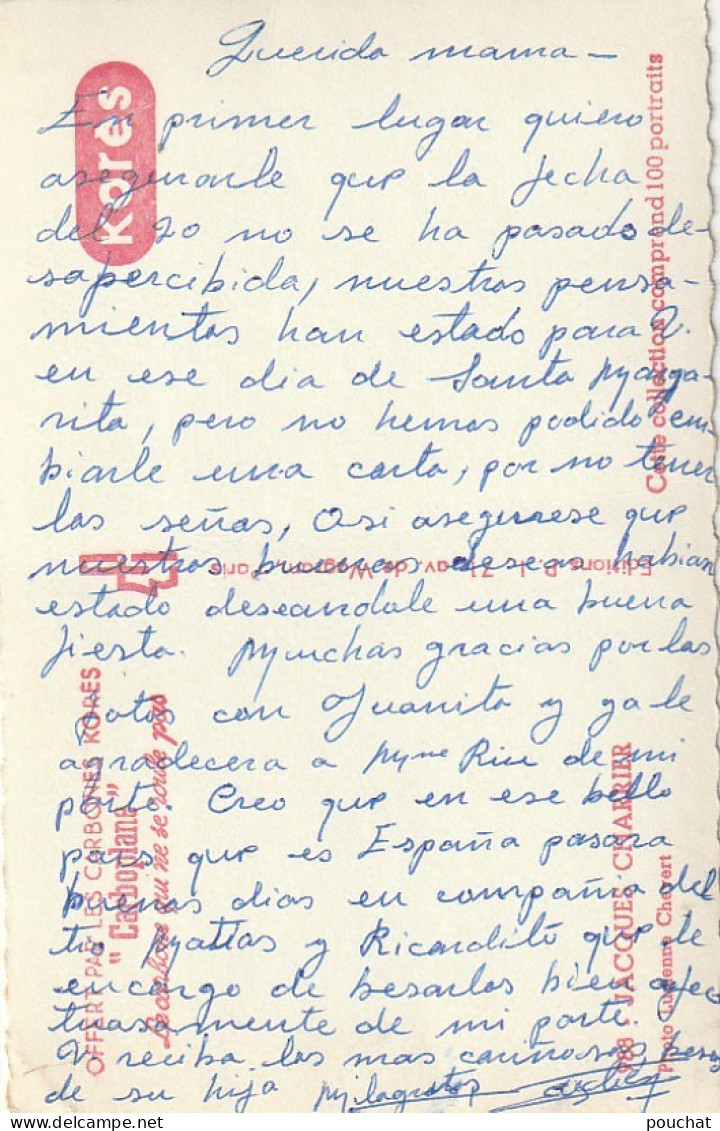 Querida mama -
En primer lugar quiero
asegurarle que la fecha
del 20 no se ha pasado de-
sapercibida, nuestros pensa-
mientos han estado para V.
en ese dia de Santa Marga-
rita, pero no hemos podido em-
biarle una carta, por no tener
las señas, Asi asegurese que
nuestros buenos deseos habian
estado deseandole una buena
fiesta. Muchas gracias por las
fotos con Juanito y ya le
agradecera a Mme Rice de mi
parte. Creo que en ese bello
pais que es España pasara
buenos dias en compañia del
tio Mattas y Ricardito que le
encargo de besarlos bien afec
tuosamente de mi parte.
V. reciba los mas cariñosos besos
de su hija Milagritos
Korès
OFFERT PAR LES CARBONES KORÈS
"Carboplane"
Le carbone qui ne se roule pas
Editions P. I. 71, av. de Wagram, Paris
Cette collection comprend 100 portraits
988 - JACQUES CHARRIER
Photo Lucienne Chevert
pouchat